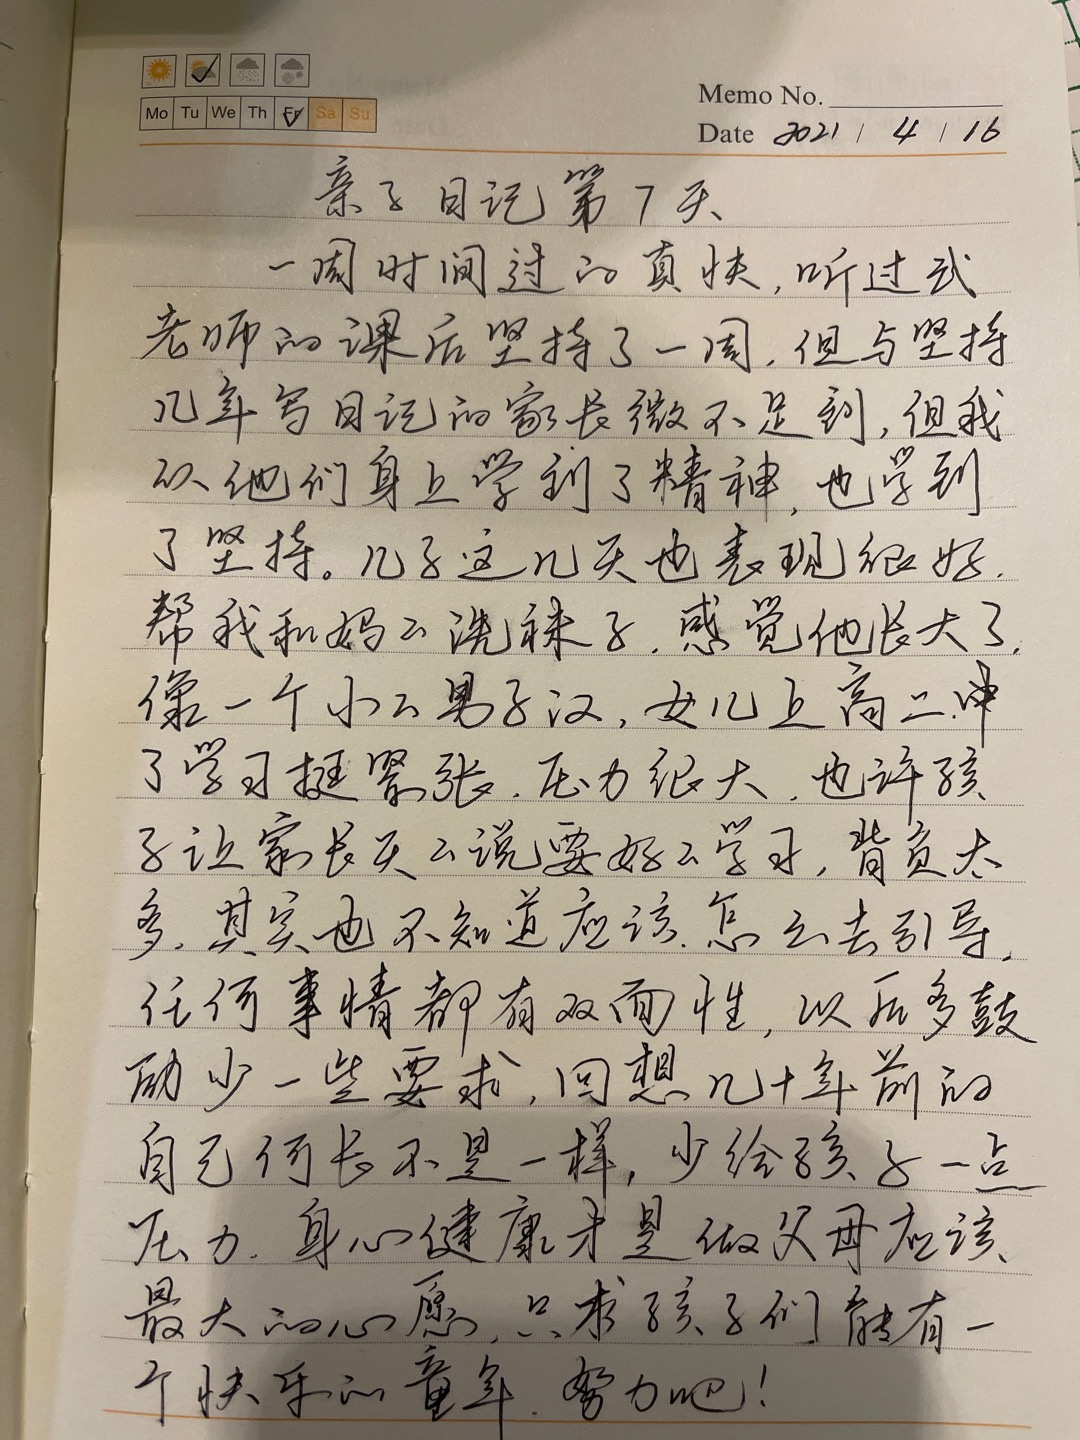 Mo Tu We Th Fr Sa Su
Memo No.
Date 2021 / 4 / 16
亲子日记第7天
一周时间过的真快,听过武
老师的课后坚持了一周,但与坚持
几年写日记的家长微不足到,但我
从他们身上学到了精神,也学到
了坚持。儿子这几天也表现很好.
帮我和妈么洗袜子.感觉他长大了.
像一个小么男子汉,女儿上高二.
了学习挺紧张.压力很大.也许孩
子让家长天么说要好么学习,背负太
多.其实也不知道应该.怎么去引导.
任何事情都有双面性,以后多鼓
励少一些要求,回想几十年前的
自己何长不是一样,少给孩子一点
压力.身心健康才是做父母应该
最大的心愿,只求孩子们能有一
个快乐的童年.努力吧!